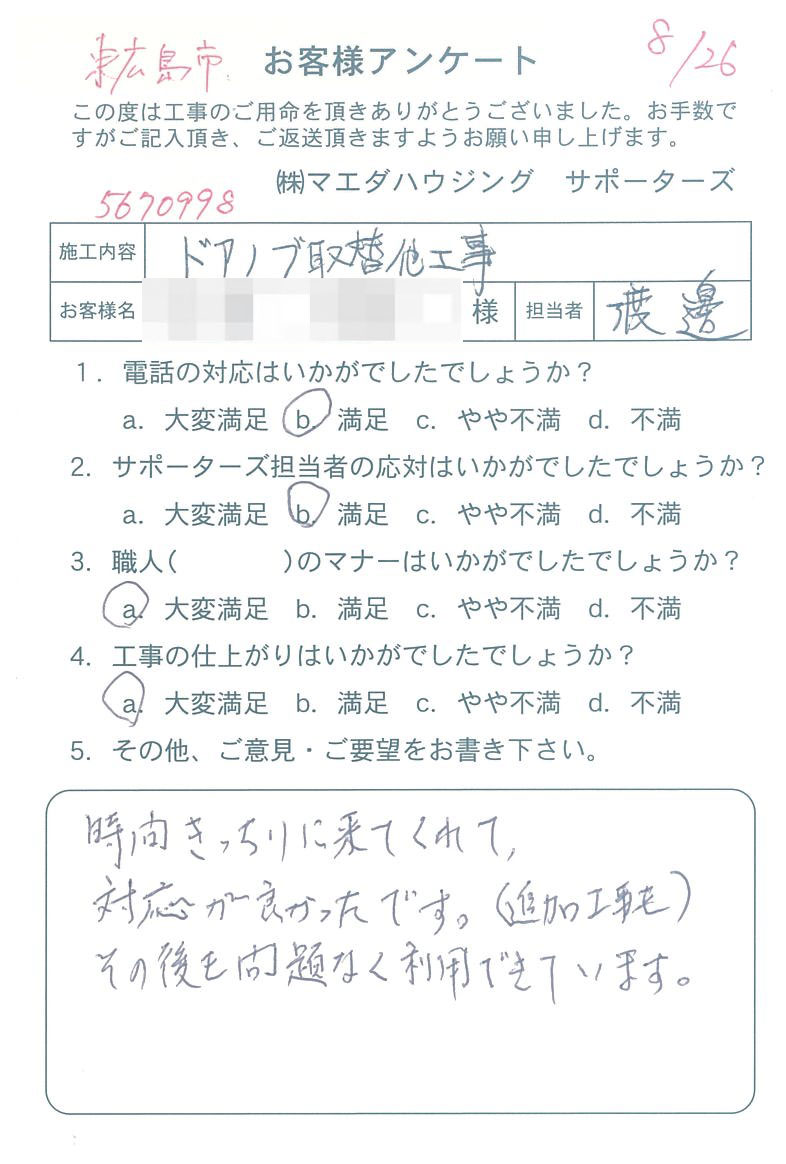 東広島市 お客様アンケート 8/26
この度は工事のご用命を頂きありがとうございました。お手数で
すがご記入頂き、ご返送頂きますようお願い申し上げます。
㈱マエダハウジング サポーターズ
5670998
施工内容 ドアノブ取替他工事
お客様名 様 担当者 渡邊
1. 電話の対応はいかがでしたでしょうか?
a. 大変満足 b. 満足 c. やや不満 d. 不満
2. サポーターズ担当者の応対はいかがでしたでしょうか?
a. 大変満足 b. 満足 c. やや不満 d. 不満
3. 職人( )のマナーはいかがでしたでしょうか?
a. 大変満足 b. 満足 c. やや不満 d. 不満
4. 工事の仕上がりはいかがでしたでしょうか?
a. 大変満足 b. 満足 c. やや不満 d. 不満
5. その他、ご意見・ご要望をお書き下さい。
時間きっちりに来てくれて,
対応が良かったです。(追加工事も)
その後も問題なく利用できています。